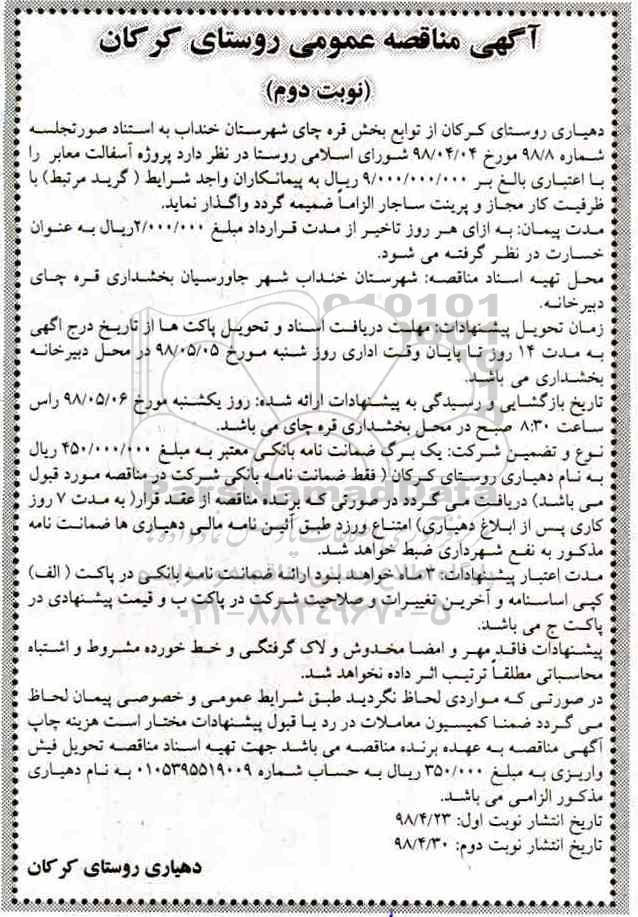 آگهی مناقصه عمومی روستای کرکان
(نوبت دوم)
دهیاری روستای کرکان از توابع بخش قره چای شهرستان خنداب به استناد صورتجلسه
شماره ۹۸/۸ مورخ ۹۸/۰۴/۰۴ شورای اسلامی روستا در نظر دارد پروژه آسفالت معابر را
با اعتباری بالغ بر ۹/۰۰۰/۰۰۰/۰۰۰ ریال به پیمانکاران واجد شرایط ( گرید مرتبط) با
ظرفیت کار مجاز و پرینت ساجار الزاماً ضمیمه گردد واگذار نماید.
مدت پیمان: به ازای هر روز تاخیر از مدت قرارداد مبلغ ۲/۰۰۰/۰۰۰ریال به عنوان
خسارت در نظر گرفته می شود.
محل تهیه اسناد مناقصه: شهرستان خنداب شهر جاورسیان بخشداری قره چای
دبیرخانه.
زمان تحویل پیشنهادات: مهلت دریافت اسناد و تحویل پاکت ها از تاریخ درج اگهی
به مدت ۱۴ روز تا پایان وقت اداری روز شنبه مورخ ۹۸/۰۵/۰۵ در محل دبیرخانه
بخشداری می باشد.
تاریخ بازگشایی و رسیدگی به پیشنهادات ارائه شده: روز یکشنبه مورخ ۹۸/۰۵/۰۶ راس
ساعت ۸:۳۰ صبح در محل بخشداری قره چای می باشد.
نوع و تضمین شرکت: یک برگ ضمانت نامه بانکی معتبر به مبلغ ۴۵۰/۰۰۰/۰۰۰ ریال
به نام دهیاری روستای کرکان ( فقط ضمانت نامه بانکی شرکت در مناقصه مورد قبول
می باشد) دریافت می گردد در صورتی که برنده مناقصه از عقد قرار( به مدت ۷ روز
کاری پس از ابلاغ دهیاری) امتناع ورزد طبق آئین نامه مالی دهیاری ها ضمانت نامه
مذکور به نفع شهرداری ضبط خواهد شد.
مدت اعتبار پیشنهادات: ۳ ماه خواهد بود ارائه ضمانت نامه بانکی در پاکت ( الف)
کپی اساسنامه و آخرین تغییرات و صلاحیت شرکت در پاکت ب و قیمت پیشنهادی در
پاکت ج می باشد.
پیشنهادات فاقد مهر و امضا مخدوش و لاک گرفتگی و خط خورده مشروط و اشتباه
محاسباتی مطلقاً ترتیب اثر داده نخواهد شد.
در صورتی که مواردی لحاظ نگردید طبق شرایط عمومی و خصوصی پیمان لحاظ
می گردد ضمنا کمیسیون معاملات در رد یا قبول پیشنهادات مختار است هزینه چاپ
آگهی مناقصه به عهده برنده مناقصه می باشد جهت تهیه اسناد مناقصه تحویل فیش
واریزی به مبلغ ۳۵۰/۰۰۰ ریال به حساب شماره ۰۱۰۵۳۹۵۵۱۹۰۰۹ به نام دهیاری
مذکور الزامی می باشد.
تاریخ انتشار نوبت اول: ۹۸/۴/۲۳
تاریخ انتشار نوبت دوم: ۹۸/۴/۳۰
دهیاری روستای کرکان
ParsNamadData
۰۲۱-۸۸۳۴۹۶۷۰-۵